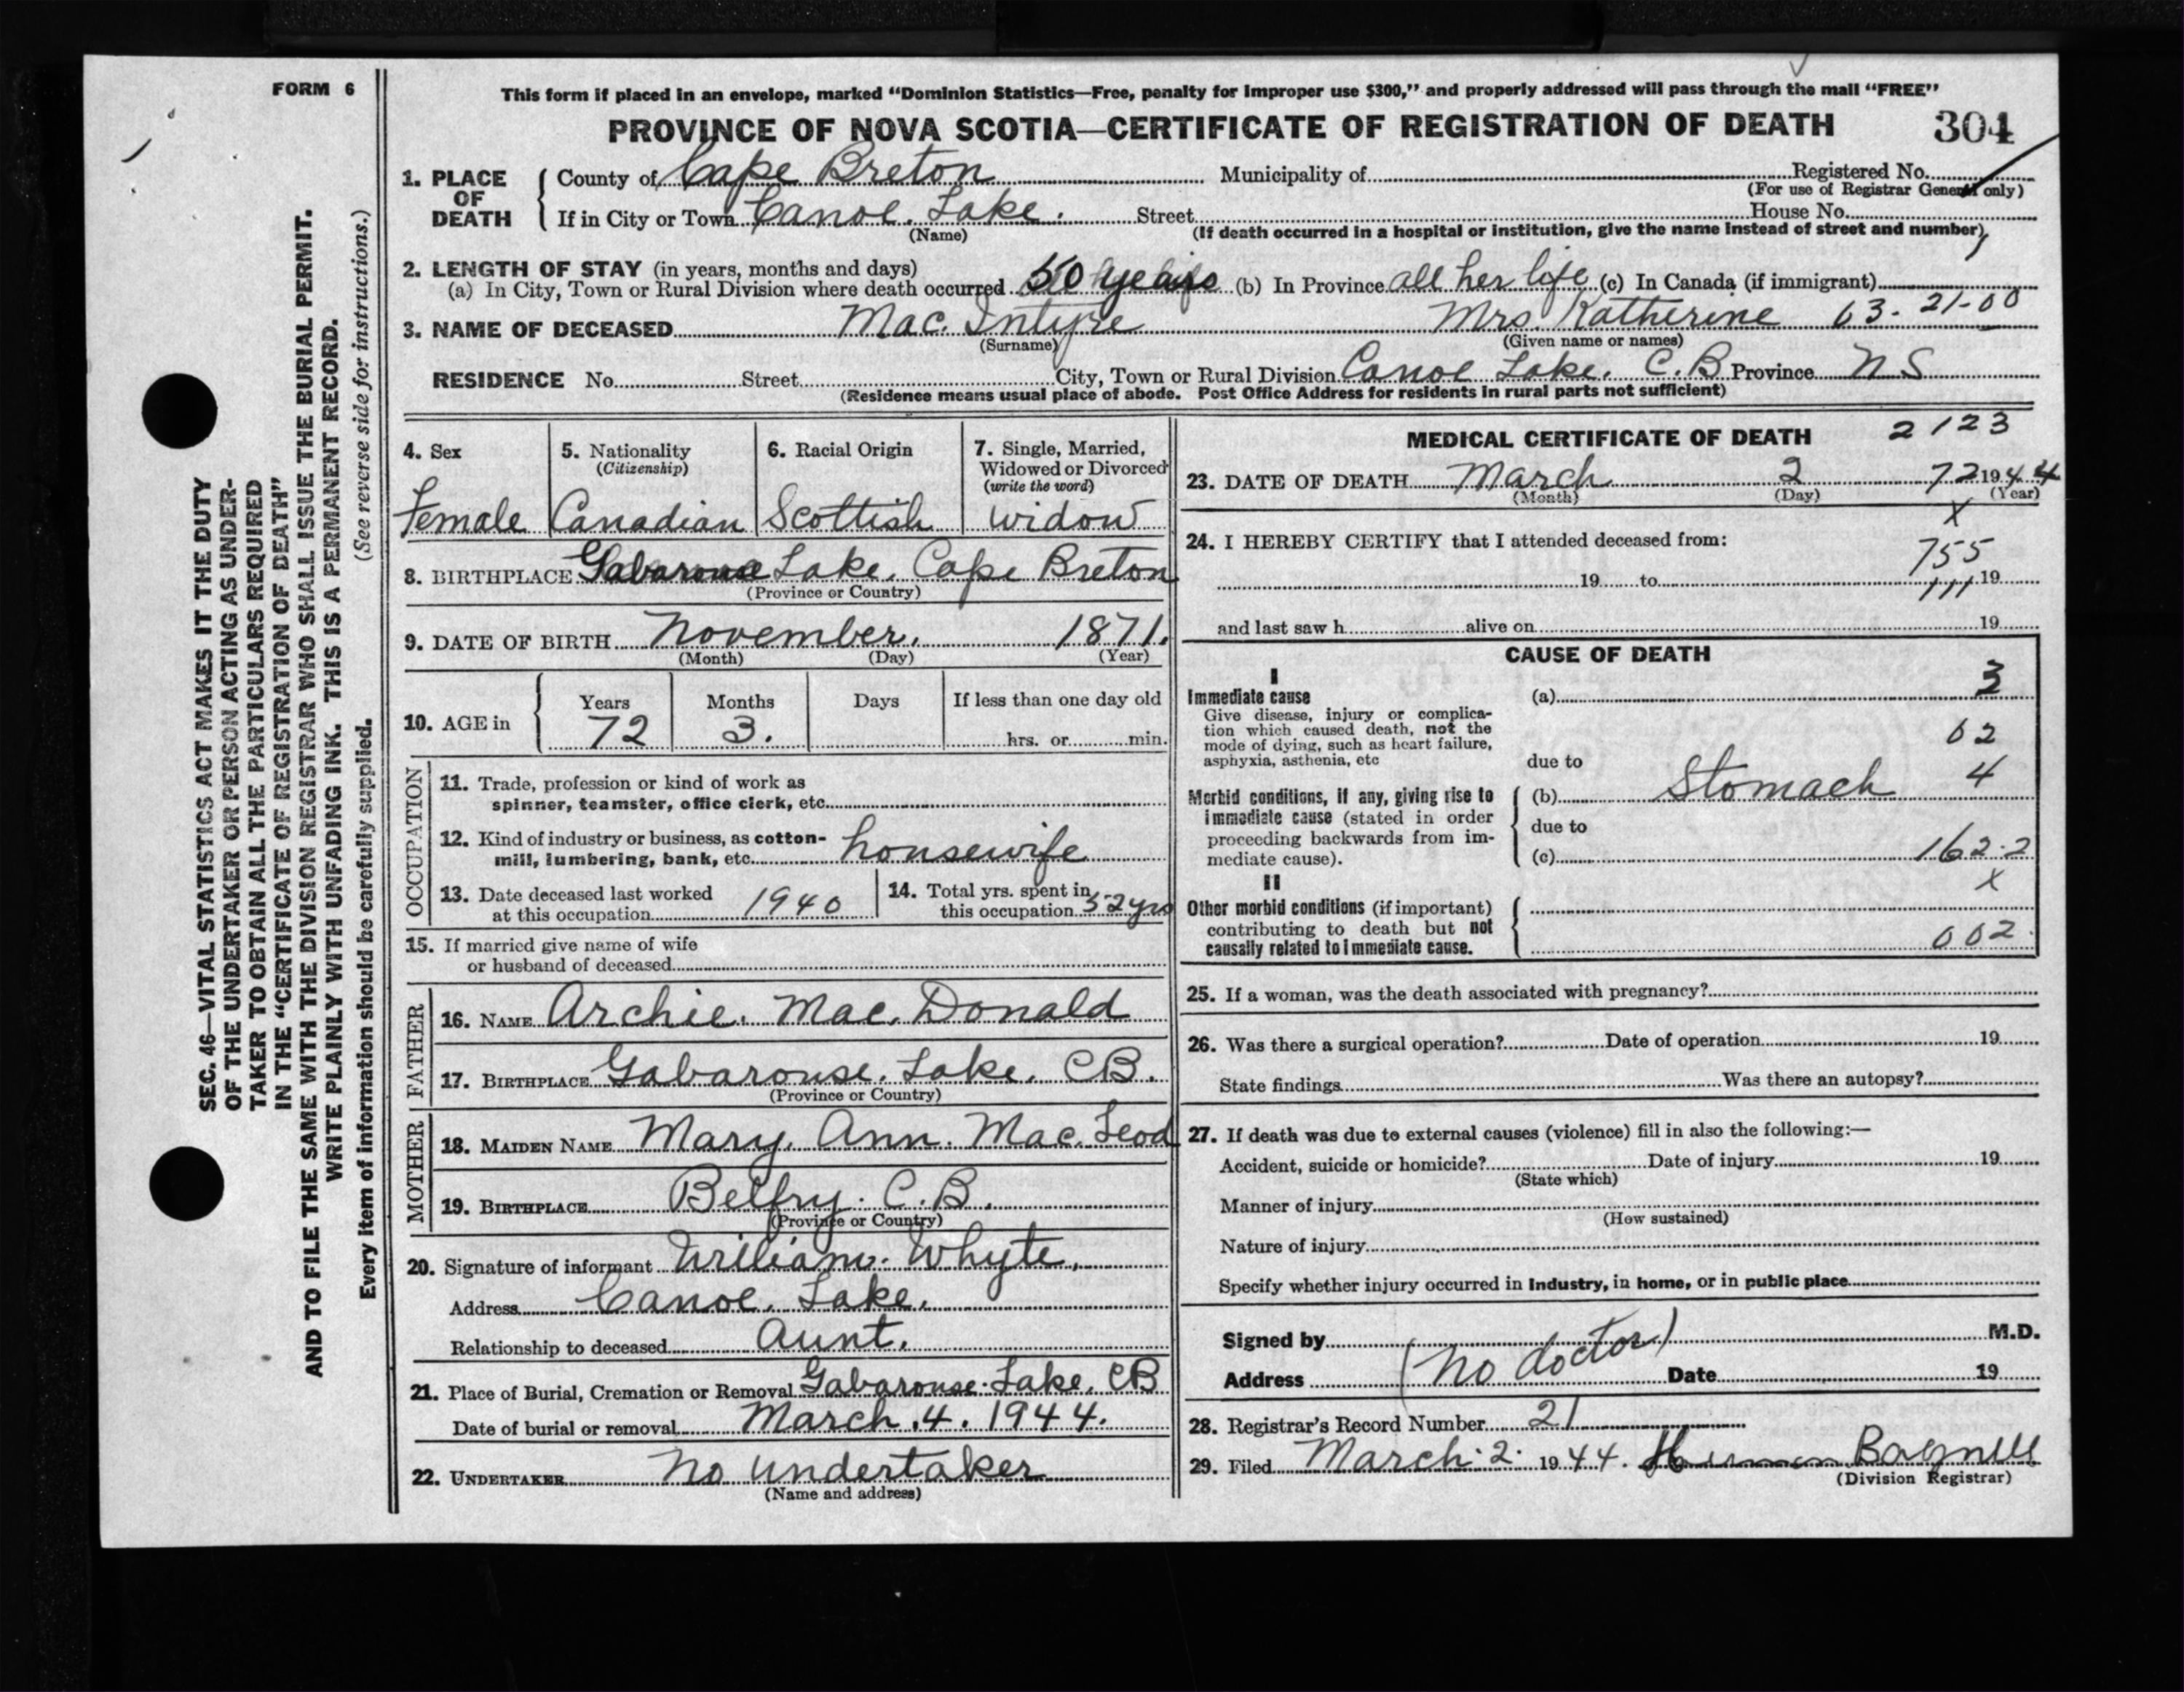 FORM 6
This form if placed in an envelope, marked "Dominion Statistics—Free, penalty for improper use $300," and properly addressed will pass through the mail "FREE"
PROVINCE OF NOVA SCOTIA—CERTIFICATE OF REGISTRATION OF DEATH 304
1. PLACE OF DEATH County of Cape Breton Municipality of Registered No.
(For use of Registrar General only)
If in City or Town Canoe. Lake. Street House No.
(Name) (If death occurred in a hospital or institution, give the name instead of street and number)
2. LENGTH OF STAY (in years, months and days)
(a) In City, Town or Rural Division where death occurred 50 years (b) In Province all her life (c) In Canada (if immigrant)
3. NAME OF DECEASED Mac. Intyre Mrs. Katherine 03-21-00
(Surname) (Given name or names)
RESIDENCE No. Street City, Town or Rural Division Canoe Lake. C.B Province N S
(Residence means usual place of abode. Post Office Address for residents in rural parts not sufficient)
4. Sex 5. Nationality 6. Racial Origin 7. Single, Married,
(Citizenship) Widowed or Divorced
(write the word)
Female Canadian Scottish widow
8. BIRTHPLACE Gabarouse Lake. Cape Breton
(Province or Country)
9. DATE OF BIRTH November. 1871.
(Month) (Day) (Year)
10. AGE in Years Months Days If less than one day old
72 3. hrs. or min.
OCCUPATION
11. Trade, profession or kind of work as
spinner, teamster, office clerk, etc.
12. Kind of industry or business, as cotton-
mill, lumbering, bank, etc. housewife
13. Date deceased last worked
at this occupation 1940
14. Total yrs. spent in
this occupation 52 yrs
15. If married give name of wife
or husband of deceased
FATHER
16. NAME Archie. Mac. Donald
17. BIRTHPLACE Gabarouse. Lake. CB.
(Province or Country)
MOTHER
18. MAIDEN NAME Mary. Ann. Mac. Leod
19. BIRTHPLACE Belfry. C.B.
(Province or Country)
20. Signature of informant William. Whyte.
Address Canoe. Lake.
Relationship to deceased Aunt.
21. Place of Burial, Cremation or Removal Gabarouse. Lake. CB
Date of burial or removal March. 4. 1944.
22. UNDERTAKER No undertaker
(Name and address)
MEDICAL CERTIFICATE OF DEATH 2123
23. DATE OF DEATH March 2 72 1944
(Month) (Day) (Year)
X
24. I HEREBY CERTIFY that I attended deceased from:
755
19 to 19
111
and last saw h alive on 19
CAUSE OF DEATH
I
Immediate cause (a) 3
Give disease, injury or complica-
tion which caused death, not the
mode of dying, such as heart failure, 02
asphyxia, asthenia, etc due to
4
Morbid conditions, if any, giving rise to (b) Stomach
immediate cause (stated in order
proceeding backwards from im- due to
mediate cause). (c) 162.2
II X
Other morbid conditions (if important)
contributing to death but not
causally related to immediate cause. 002
25. If a woman, was the death associated with pregnancy?
26. Was there a surgical operation? Date of operation 19
State findings Was there an autopsy?
27. If death was due to external causes (violence) fill in also the following:—
Accident, suicide or homicide? Date of injury 19
(State which)
Manner of injury
(How sustained)
Nature of injury
Specify whether injury occurred in industry, in home, or in public place
Signed by M.D.
Address (No doctor) Date 19
28. Registrar's Record Number 21
29. Filed March. 2. 1944. Bagnell
(Division Registrar)
SEC. 46—VITAL STATISTICS ACT MAKES IT THE DUTY
OF THE UNDERTAKER OR PERSON ACTING AS UNDER-
TAKER TO OBTAIN ALL THE PARTICULARS REQUIRED
IN THE "CERTIFICATE OF REGISTRATION OF DEATH"
AND TO FILE THE SAME WITH THE DIVISION REGISTRAR WHO SHALL ISSUE THE BURIAL PERMIT.
WRITE PLAINLY WITH UNFADING INK. THIS IS A PERMANENT RECORD.
Every item of information should be carefully supplied. (See reverse side for instructions.)